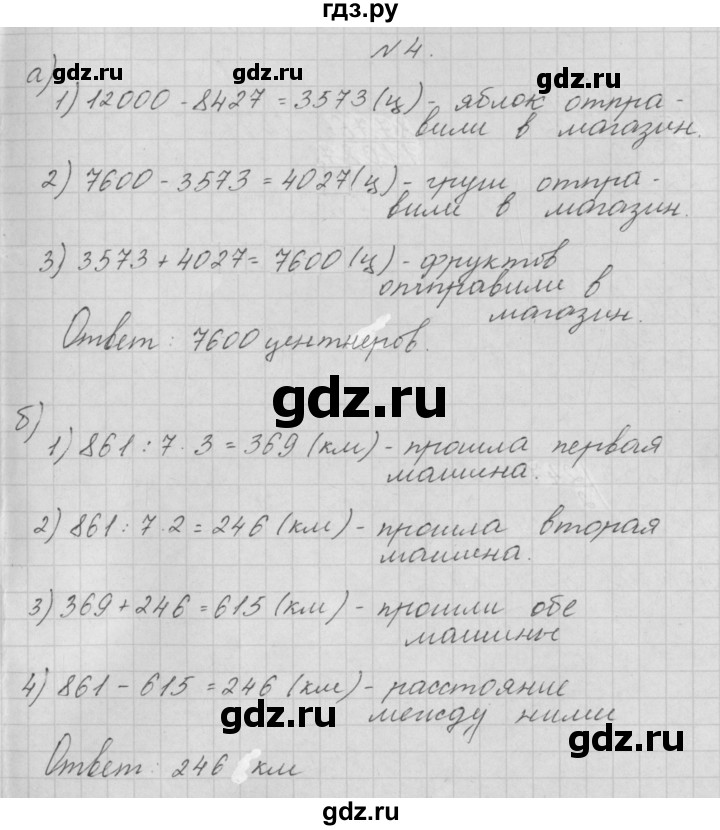 гдз.ру
N 4.
а)
gdz.ru gdz.ru gdz.ru
1) 12000 - 8427 = 3573 (ц) - яблок отпра-
вили в магазин.
2) 7600 - 3573 = 4027 (ц) - груш отпра-
вили в магазин.
3) 3573 + 4027 = 7600 (ц) - фруктов
отправили в
магазин.
Ответ: 7600 центнеров.
gdz.ru
б)
1) 861 : 7 · 3 = 369 (км) - прошла первая
машина.
2) 861 : 7 · 2 = 246 (км) - прошла вторая
машина.
3) 369 + 246 = 615 (км) - прошли обе
машины
4) 861 - 615 = 246 (км) - расстояние
между ними
gdz.ru gdz.ru
Ответ: 246 км
gdz.ru